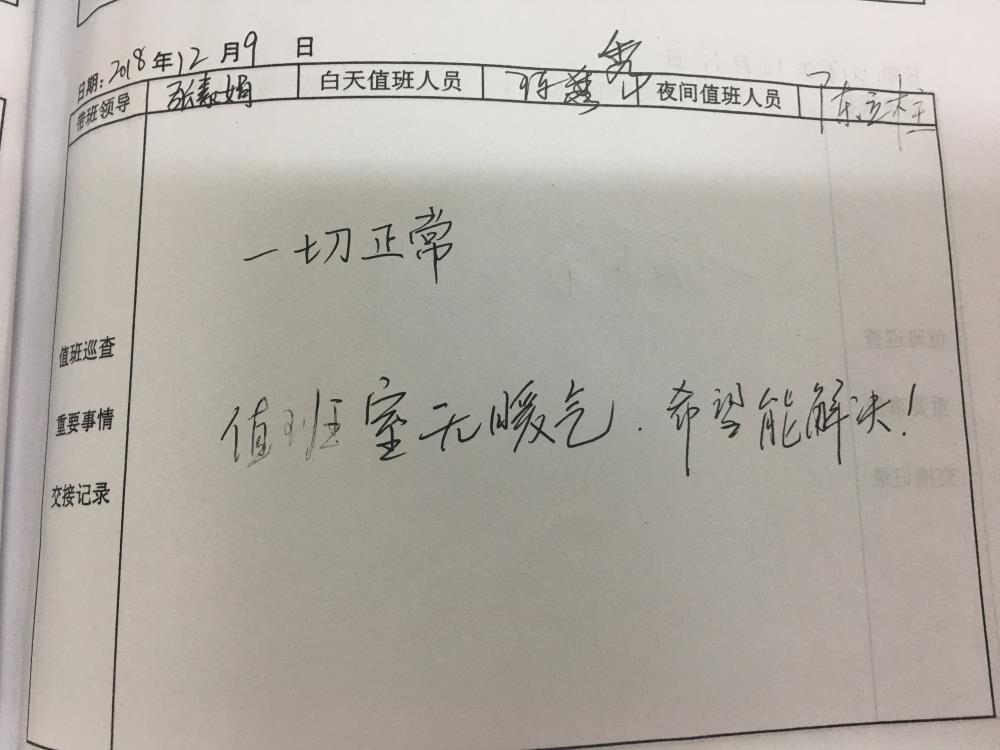 日期:2018年12月9日
带班领导 张娟 白天值班人员 夜间值班人员 陈立柱
一切正常
值班巡查
值班室无暖气.希望能解决!
重要事情
交接记录